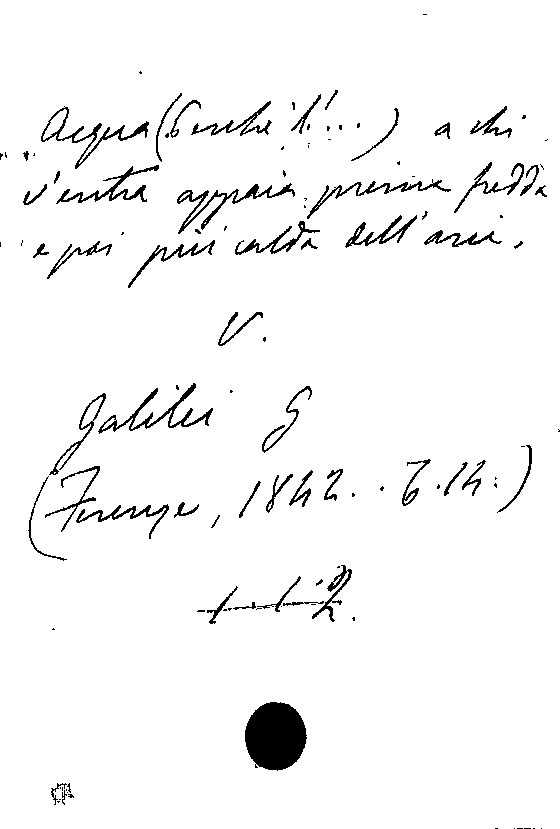 Acqua (Perchè l'...) a chi
v'entra appaia prima fredda
e poi più calda dell'aria.
V.
Galilei G
(Firenze, 1842.. T. 14.)